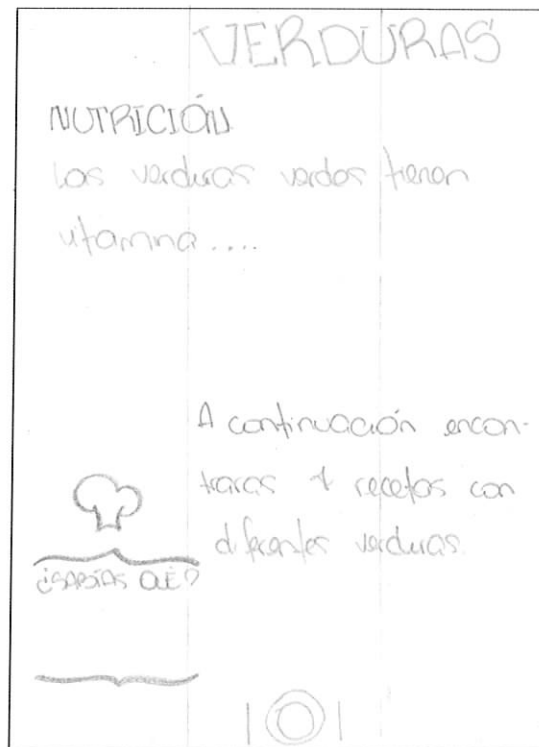 VERDURAS
NUTRICIÓN
Las verduras verdes tienen
vitamina....
A continuación encon-
traras recetas con
diferentes verduras
¿SABÍAS QUÉ?
101